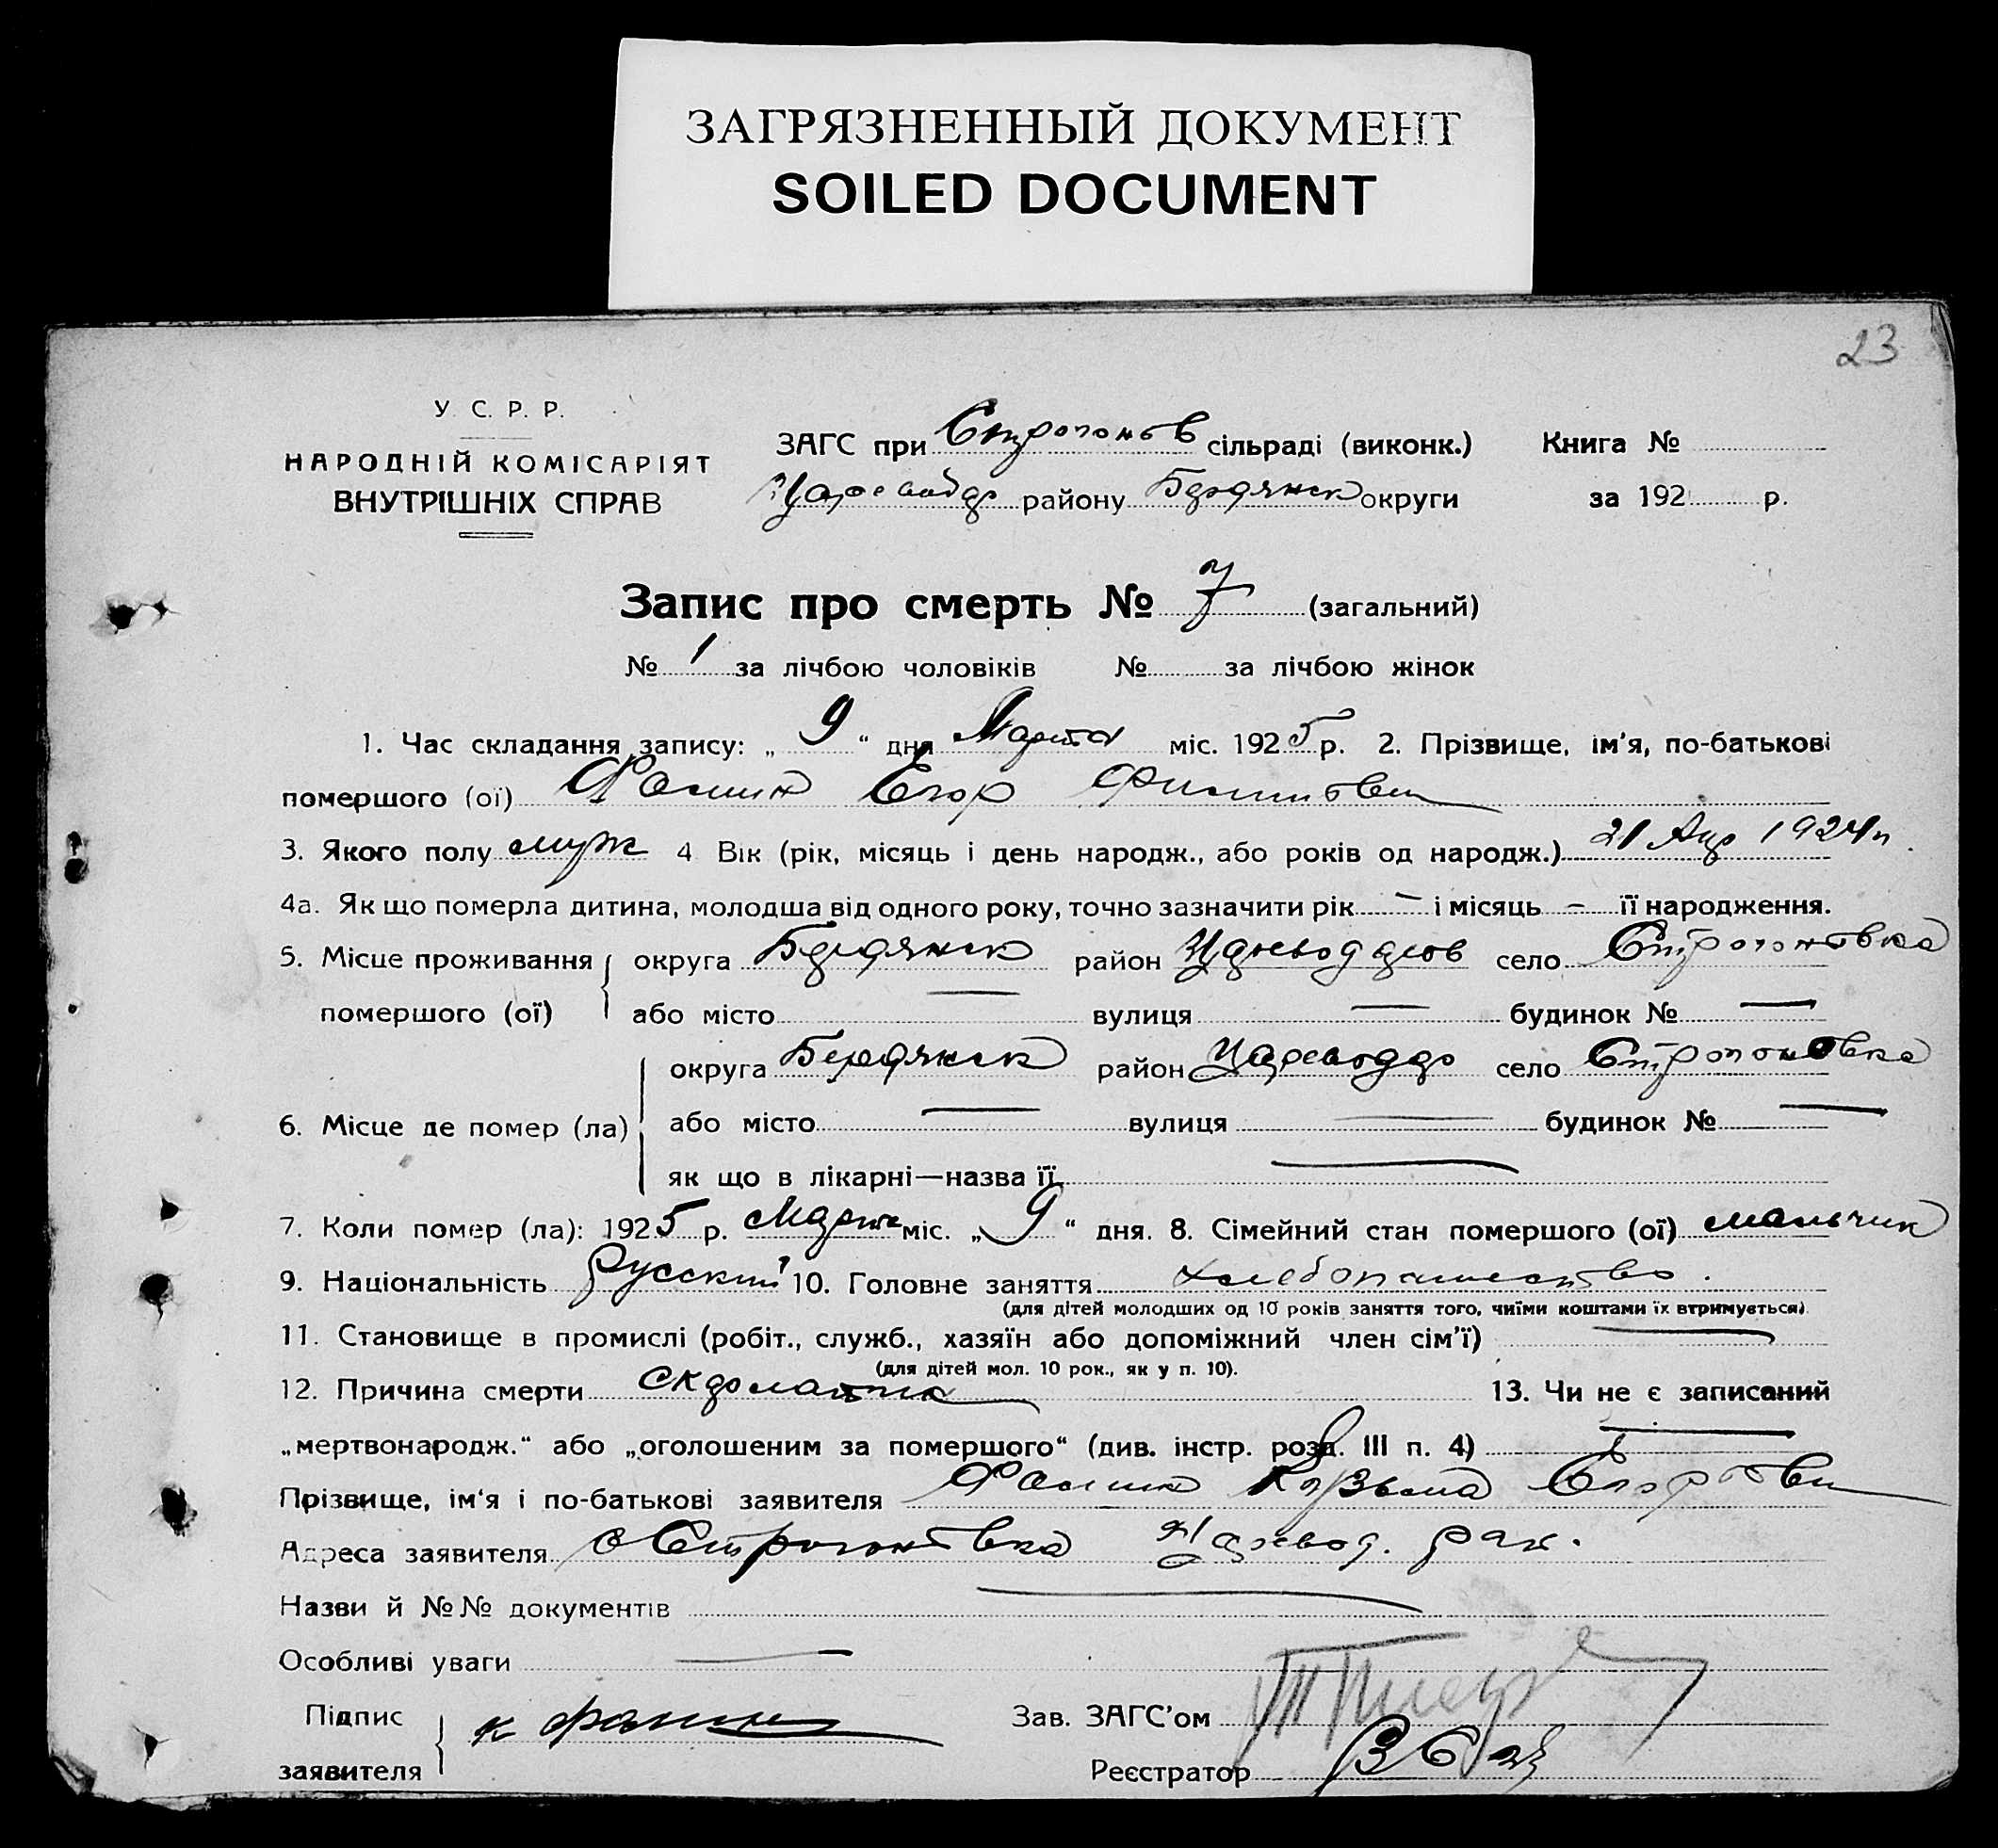 ЗАГРЯЗНЕННЫЙ ДОКУМЕНТ
SOILED DOCUMENT
23
У. С. Р. Р.
НАРОДНІЙ КОМІСАРІЯТ
ВНУТРІШНІХ СПРАВ
ЗАГС при Строгонов сільраді (виконк.) Книга №
Царевод району Бердянск округи за 192 р.
Запис про смерть № 7 (загальний)
№ 1 за лічбою чоловіків № за лічбою жінок
1. Час складання запису: „ 9 “ дня Марта міс. 1925 р. 2. Прізвище, ім'я, по-батькові
помершого (ої) Фомин Егор
3. Якого полу муж 4 Вік (рік, місяць і день народж., або років од народж.) 21 Апр 1924 г.
4а. Як що померла дитина, молодша від одного року, точно зазначити рік – і місяць – її народження.
5. Місце проживання округа Бердянск район село Строгоновка
помершого (ої) або місто — вулиця — будинок № —
округа Бердянск район село Строгоновка
6. Місце де помер (ла) або місто — вулиця — будинок № —
як що в лікарні—назва її —
7. Коли помер (ла): 1925 р. Марта міс. „ 9 “ дня. 8. Сімейний стан помершого (ої) мальчик
9. Національність Русский 10. Головне заняття хлебопашество.
(для дітей молодших од 10 років заняття того, чиїми коштами їх втримується).
11. Становище в промислі (робіт., служб., хазяїн або допоміжний член сім'ї) —
(для дітей мол. 10 рок., як у п. 10).
12. Причина смерти скарлатина 13. Чи не є записаний
„мертвонародж.“ або „оголошеним за помершого“ (див. інстр. розд. III п. 4) —
Прізвище, ім'я і по-батькові заявителя Фомин Кузьма
Адреса заявителя с Строгоновка Царевод. рай.
Назви й №№ документів —
Особливі уваги —
Підпис К Фомин Зав. ЗАГС'ом
заявителя Реєстратор